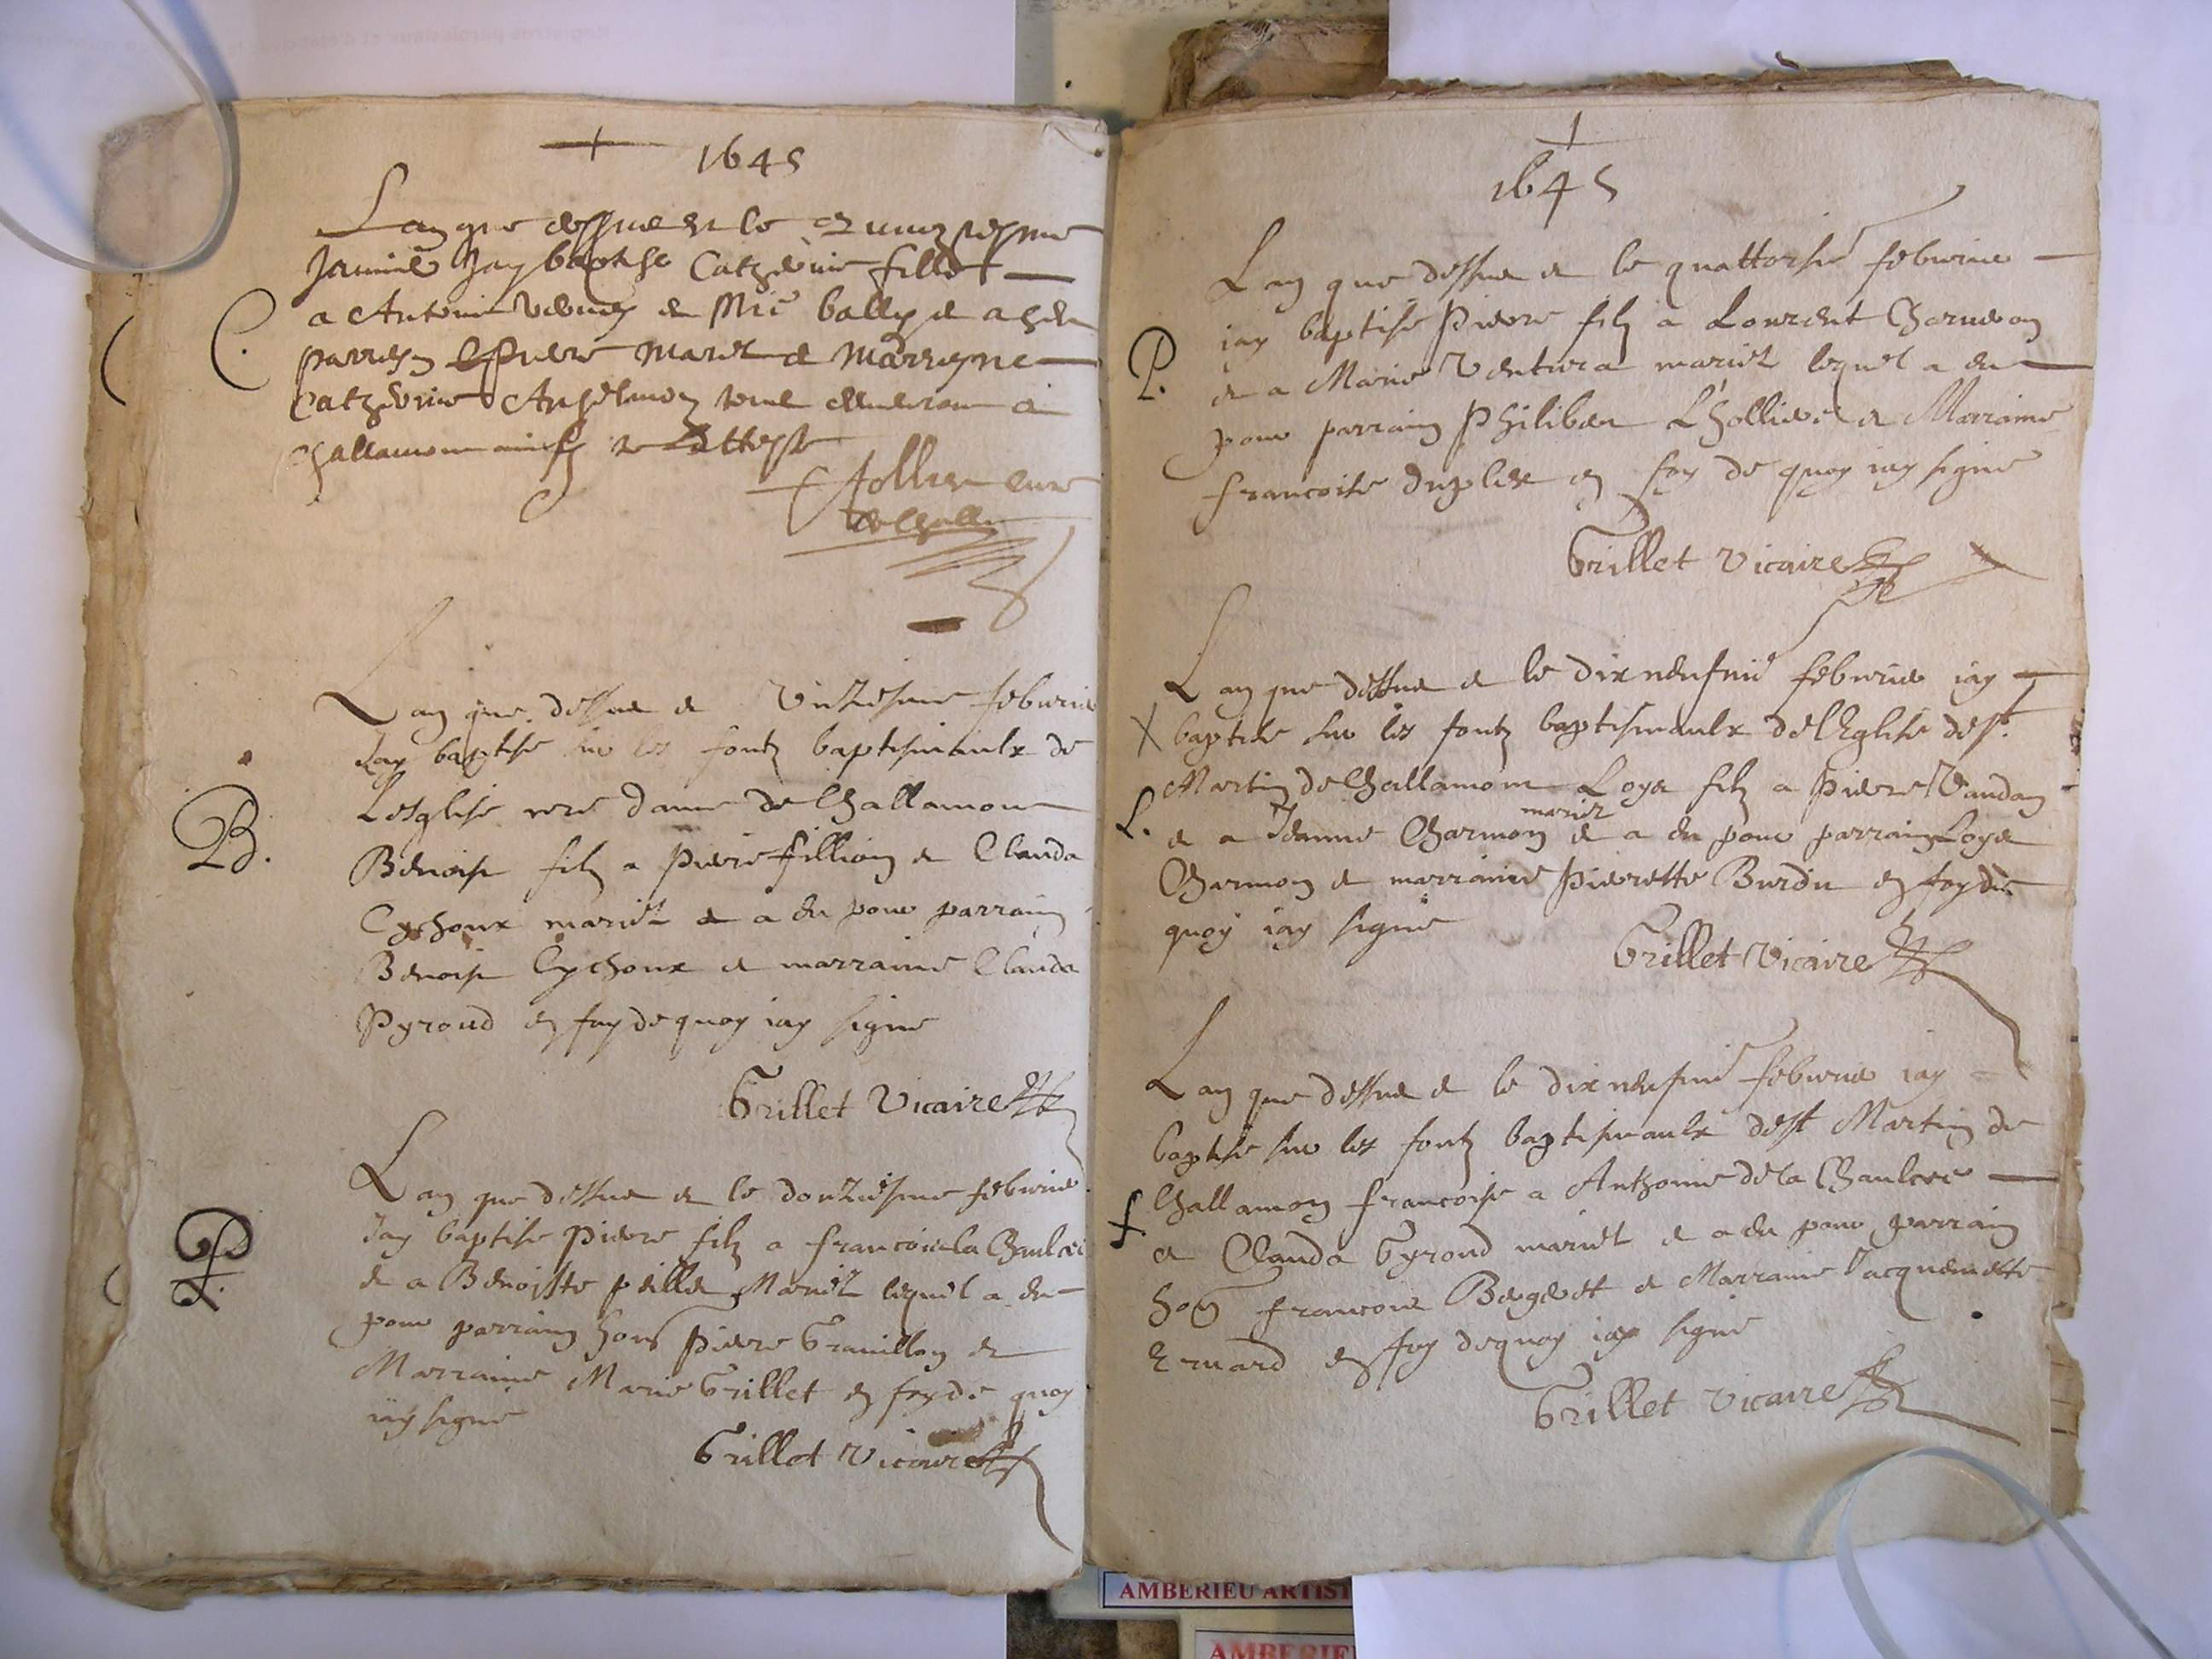 1645
Lan que dessus et le
Janvier Jay baptise Catherine fille
a Antoine et bally et a heu
parreyn Pierre et Marreyne
Catherine
Challamon ainsy je Atteste
Jollier cure
de Challa
Lan que dessus et febvrier
Jay baptise sur les fontz baptismaulx de
Lesglise nre dame de Challamon
B.
Benoist filz a Pierre fillion et Clauda
Cychoux mariez et a eu pour parrain
Benoist Cychoux et marraine Clauda
Pyroud en foy de quoy iay signe
Grillet Vicaire
Lan que dessus et le douziesme febvrier
P.
Jay baptise Pierre filz a francois la Chaulcee
et a Benoiste peille Mariez lequel a eu
pour parrain hon Pierre Gravillon et
Marraine Marie Grillet en foy de quoy
iay signe
Grillet Vicaire
1645
Lan que dessus et le quattorsie febvrier
iay baptise Pierre filz a Lourent Charveon
P.
et a Marie Ventura mariez lequel a eu
pour parrain Philiber L'hollier et Marraine
francoise Duplex en foy de quoy iay signe
Grillet Vicaire
Lan que dessus et le dix neufvie febvrier iay
baptise sur les fontz baptismaulx de l'Eglise de st
Martin de Challamon Loys filz a Pierre Vaudan
mariez
L. et a Jeanne Charmon et a eu pour parrain Loys
Charmon et marraine Pierrette Burdin en foy de
quoy iay signe
Grillet Vicaire
Lan que dessus et le dix neufvie febvrier iay
baptise sur les fontz baptismaulx de st Martin de
Challamon francoise a Anthoine de la Chaulcee
f
et Clauda Gyroud mariez et a eu pour parrain
hon francois Bergeret et Marraine Jacquemette
Eruard en foy de quoy iay signe
Grillet Vicaire
AMBERIEU ARTIST
AMBERIE